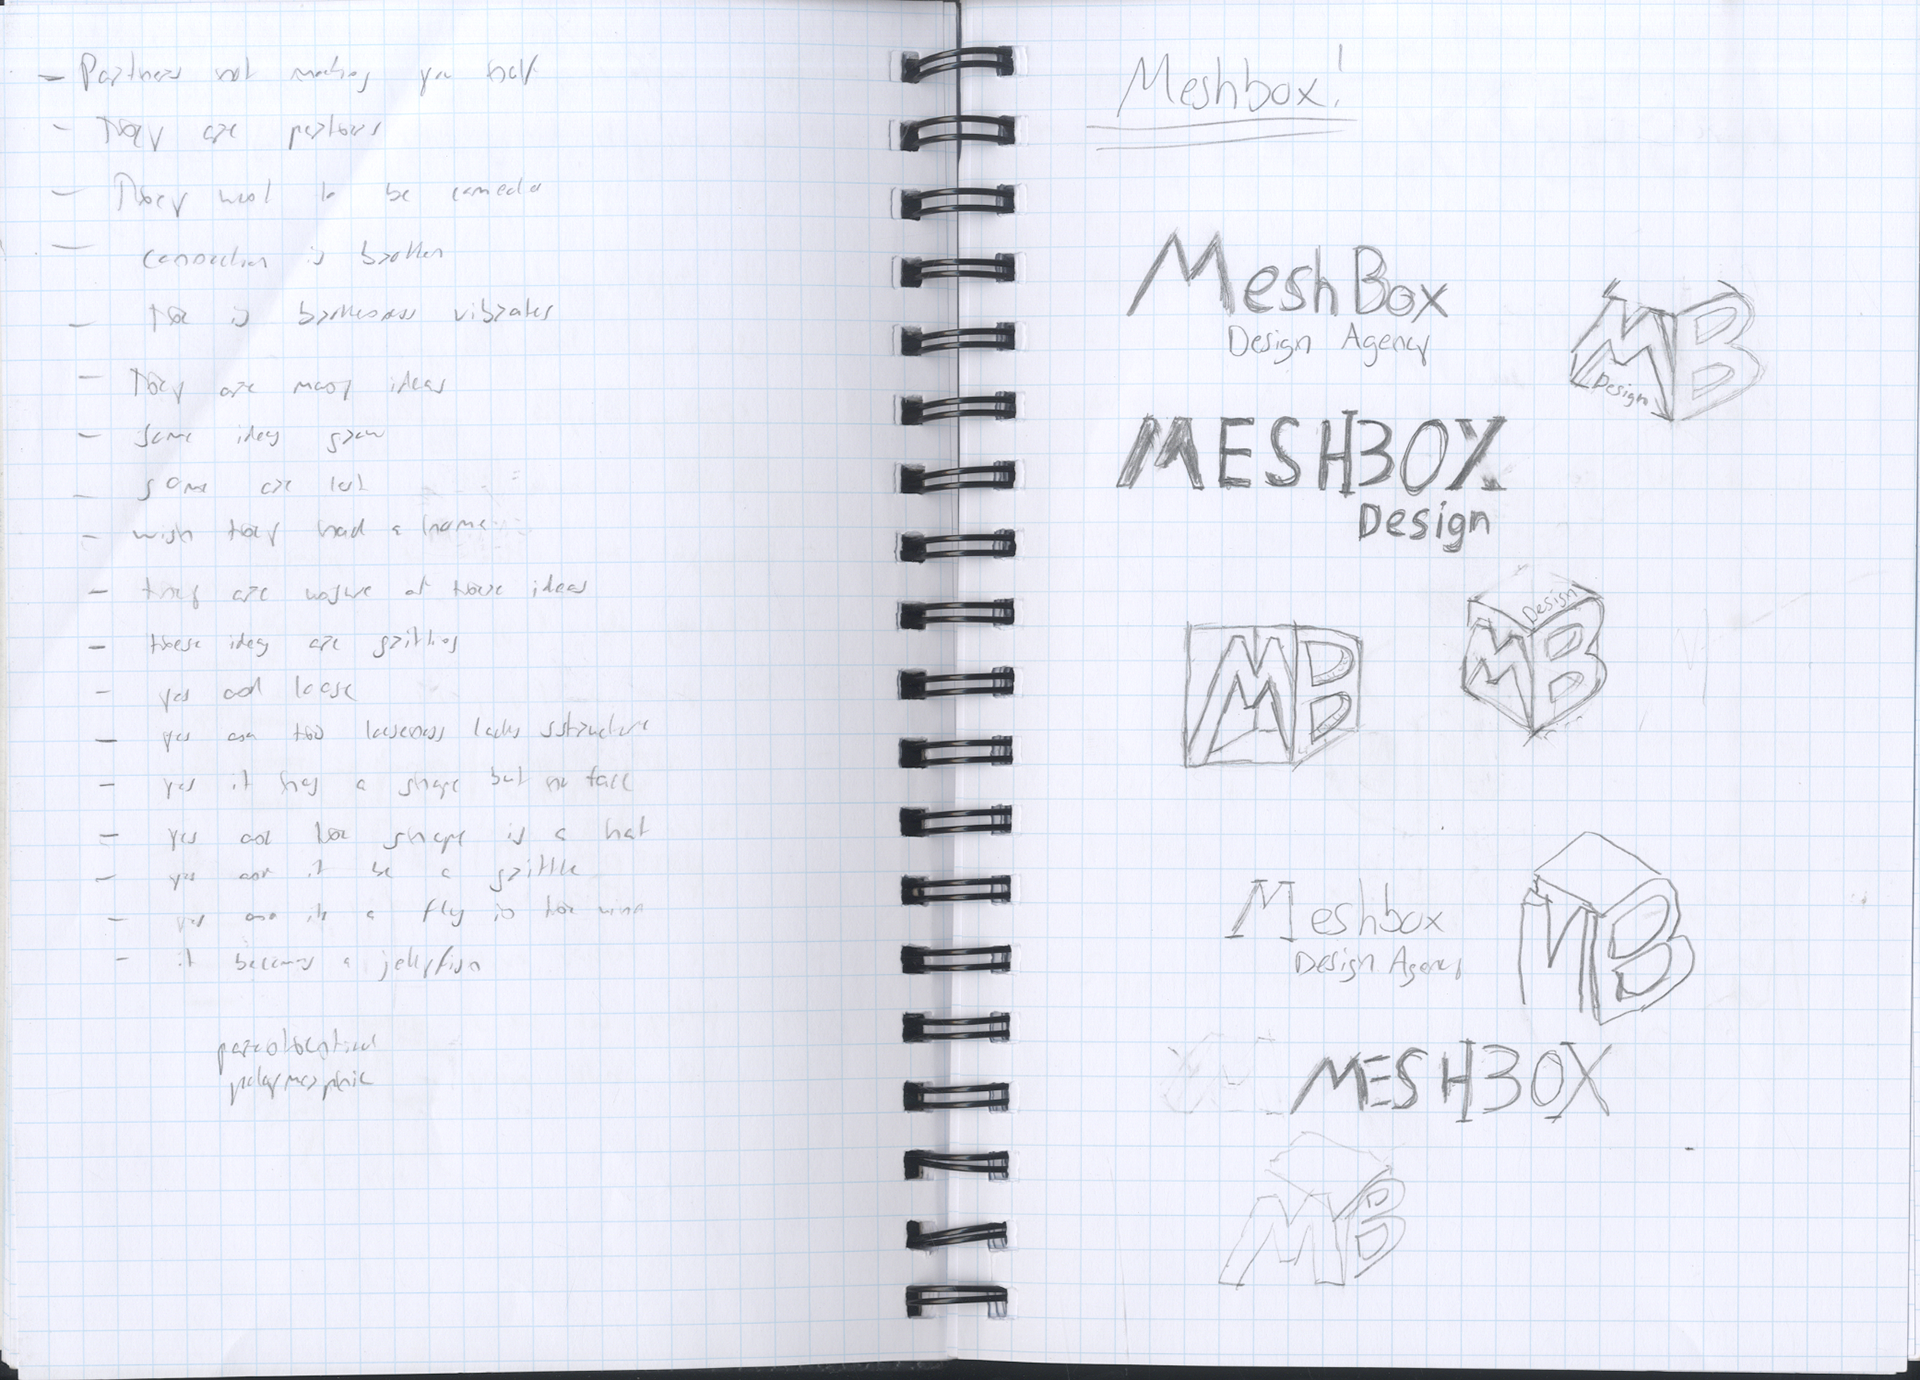 - Partners not making you half
- They are partners
- They want to be comedia
- connection is broken
- The is brokenness vibrates
- They are many ideas
- some ideas grow
- some are lost
- wish they had a home
- they are unsure of those ideas
- these ideas are
- yes and loose
- yes and too looseness lacks sstructure
- yes it has a shape but no face
- yes and the shape is a hat
- yes and it be a
- yes and its a fly in the wind
- it becomes a jellyfish
polymorphic
Meshbox!
MeshBox
Design Agency
MB
Design
MESHBOX
Design
MB
Design
MB
Meshbox
Design Agency
MB
MESHBOX
MB